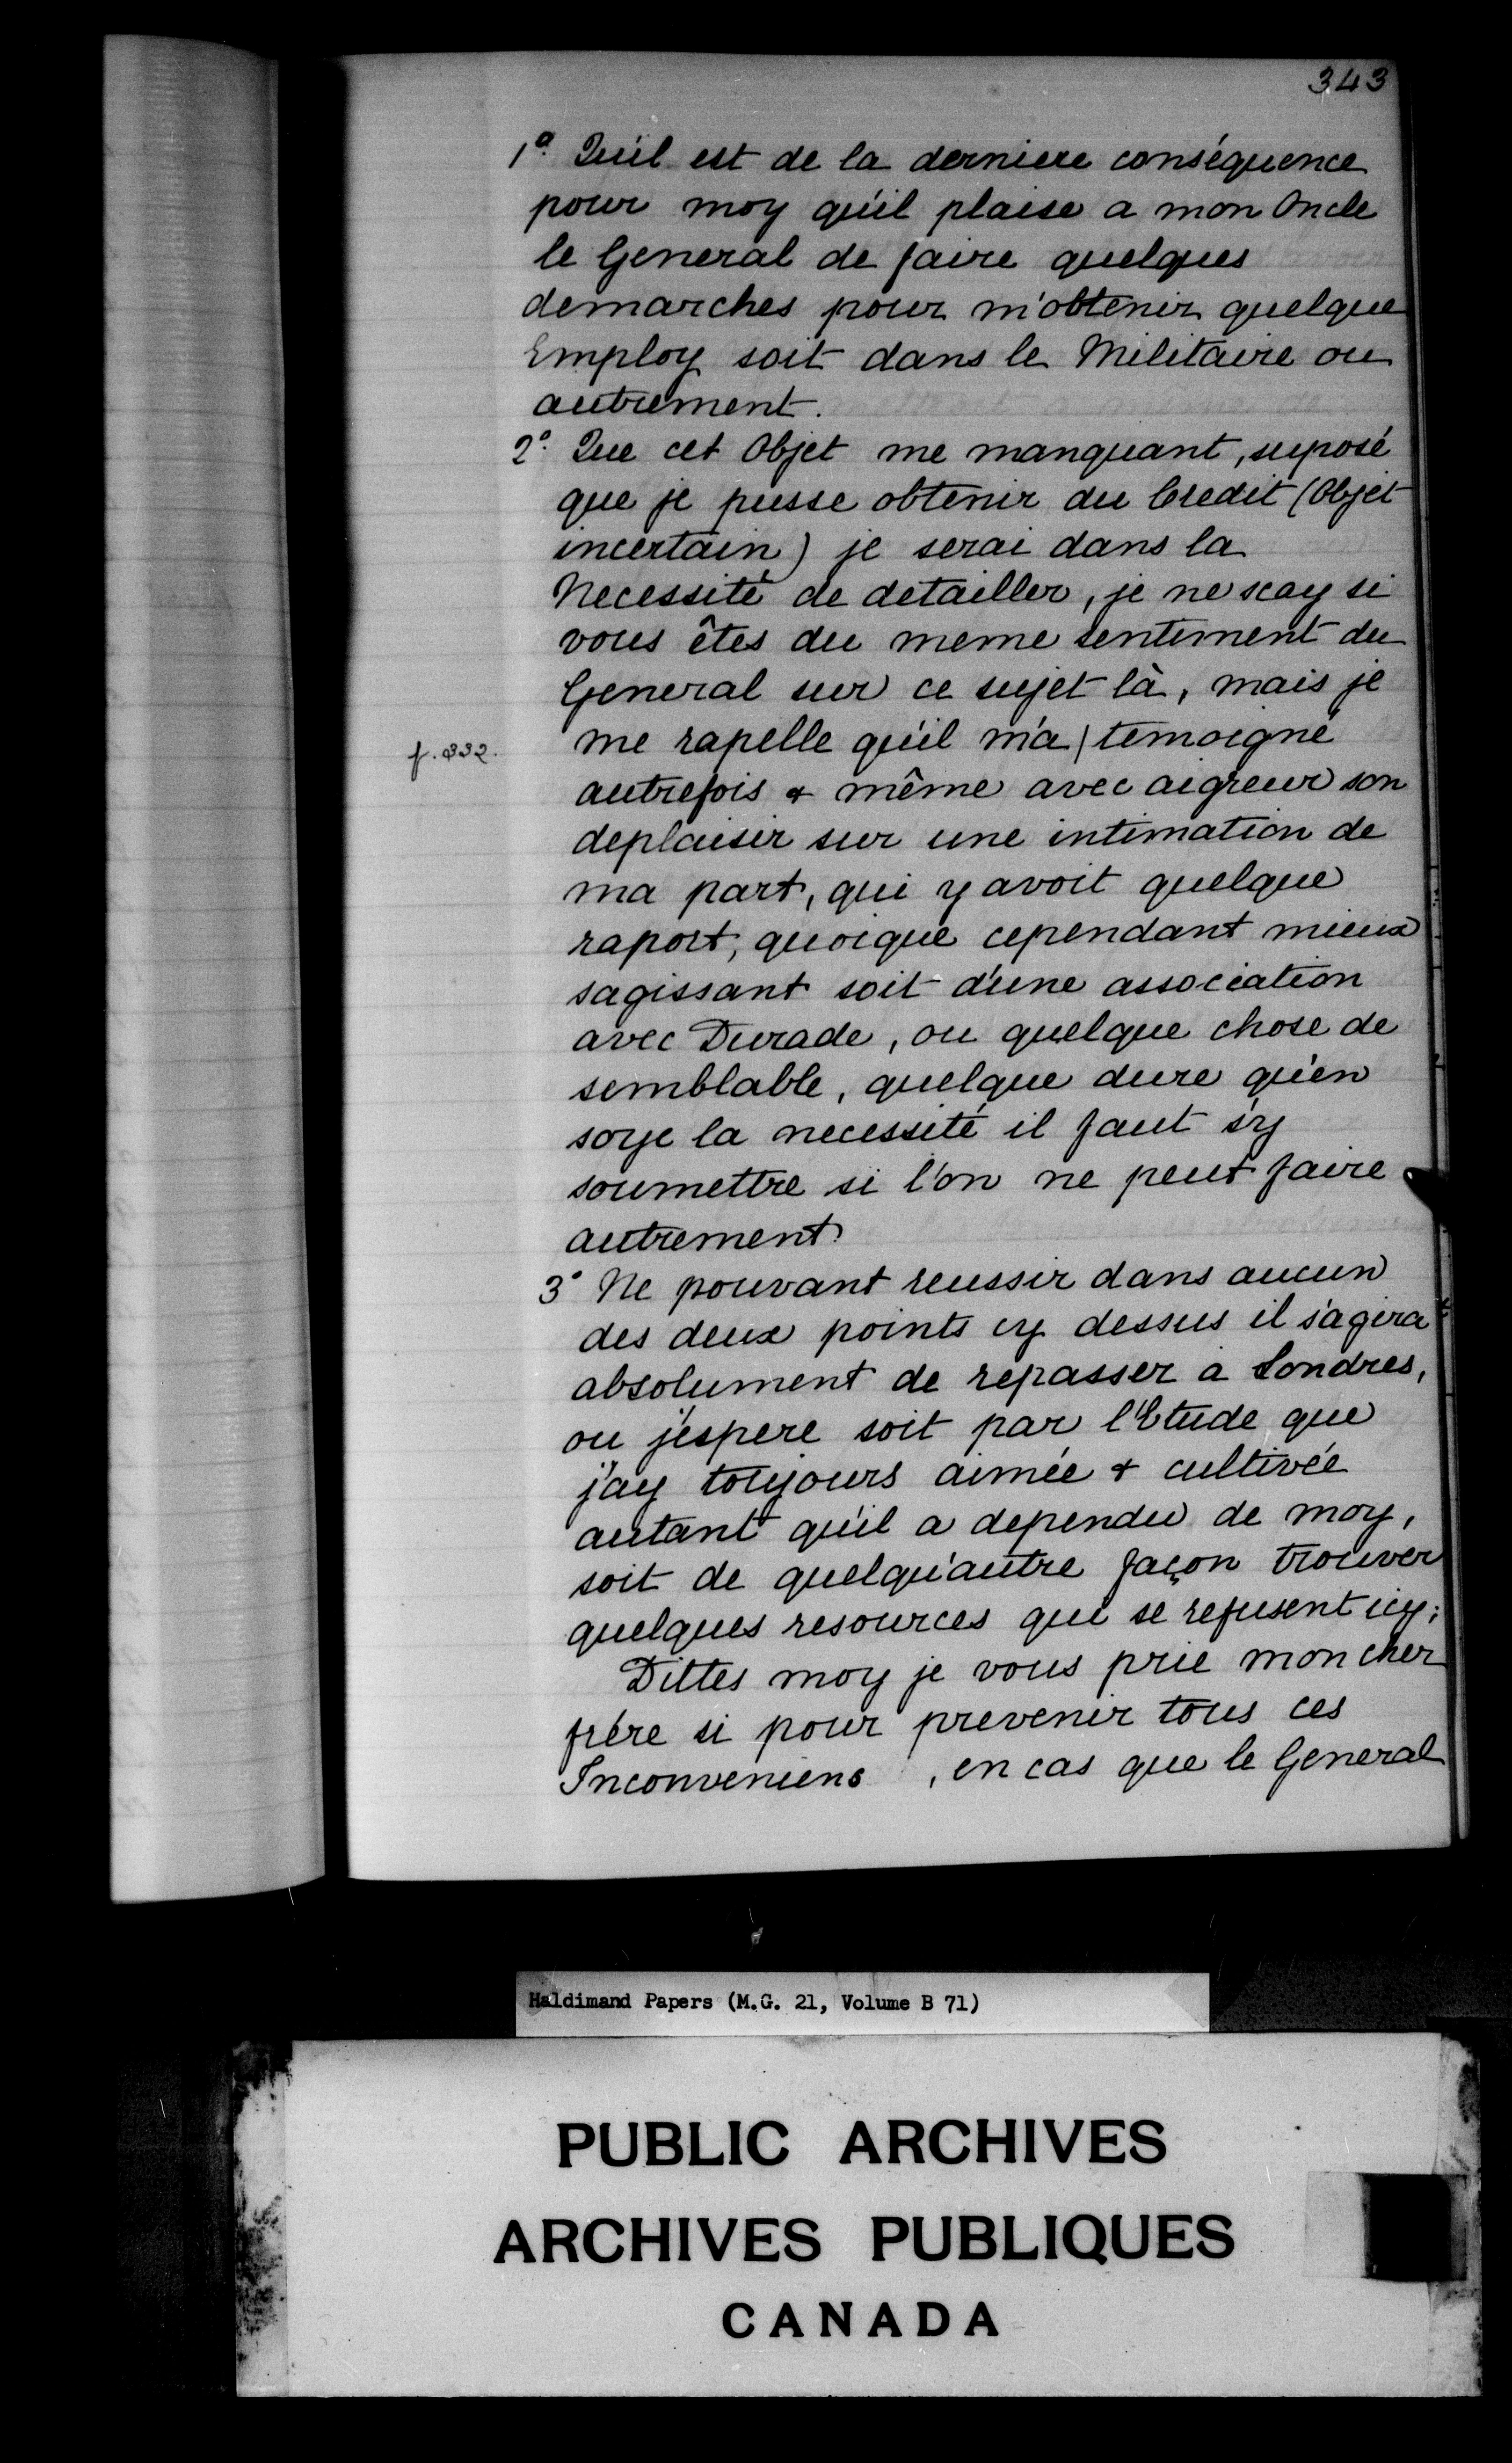 343
1º Qu'il est de la derniere conséquence
pour moy qu'il plaise a mon Oncle
le General de faire quelques
demarches pour m'obtenir quelque
Employ soit dans le Militaire ou
autrement.
2º Que cet Objet me manquant, suposé
que je pusse obtenir du Credit (Objet
incertain) je serai dans la
Necessité de detailler, je ne scay si
vous êtes du meme sentiment du
General sur ce sujet là, mais je
f. 332. me rapelle qu'il m'a | temoigné
autrefois & même avec aigreur son
deplaisir sur une intimation de
ma part, qui y avoit quelque
raport, quoique cependant mieux
sagissant soit d'une association
avec Durade, ou quelque chose de
semblable, quelque dure qu'en
soye la necessité il faut s'y
soumettre si l'on ne peut faire
autrement.
3º Ne pouvant reussir dans aucun
des deux points cy dessus il s'agira
absolument de repasser a Londres,
ou j'espere soit par l'Etude que
j'ay toujours aimée & cultivée
autant qu'il a dependu de moy,
soit de quelqu'autre façon trouver
quelques resources qui se refusent icy;
Dittes moy je vous prie mon cher
frére si pour prevenir tous ces
Inconveniens , en cas que le General
Haldimand Papers (M.G. 21, Volume B 71)
PUBLIC ARCHIVES
ARCHIVES PUBLIQUES
CANADA